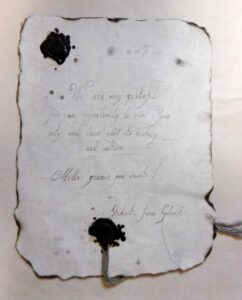 We are very grateful
for an opportunity to visit Your
city and learn about its history
and culture.
Mille grazie
Students from Gdańsk